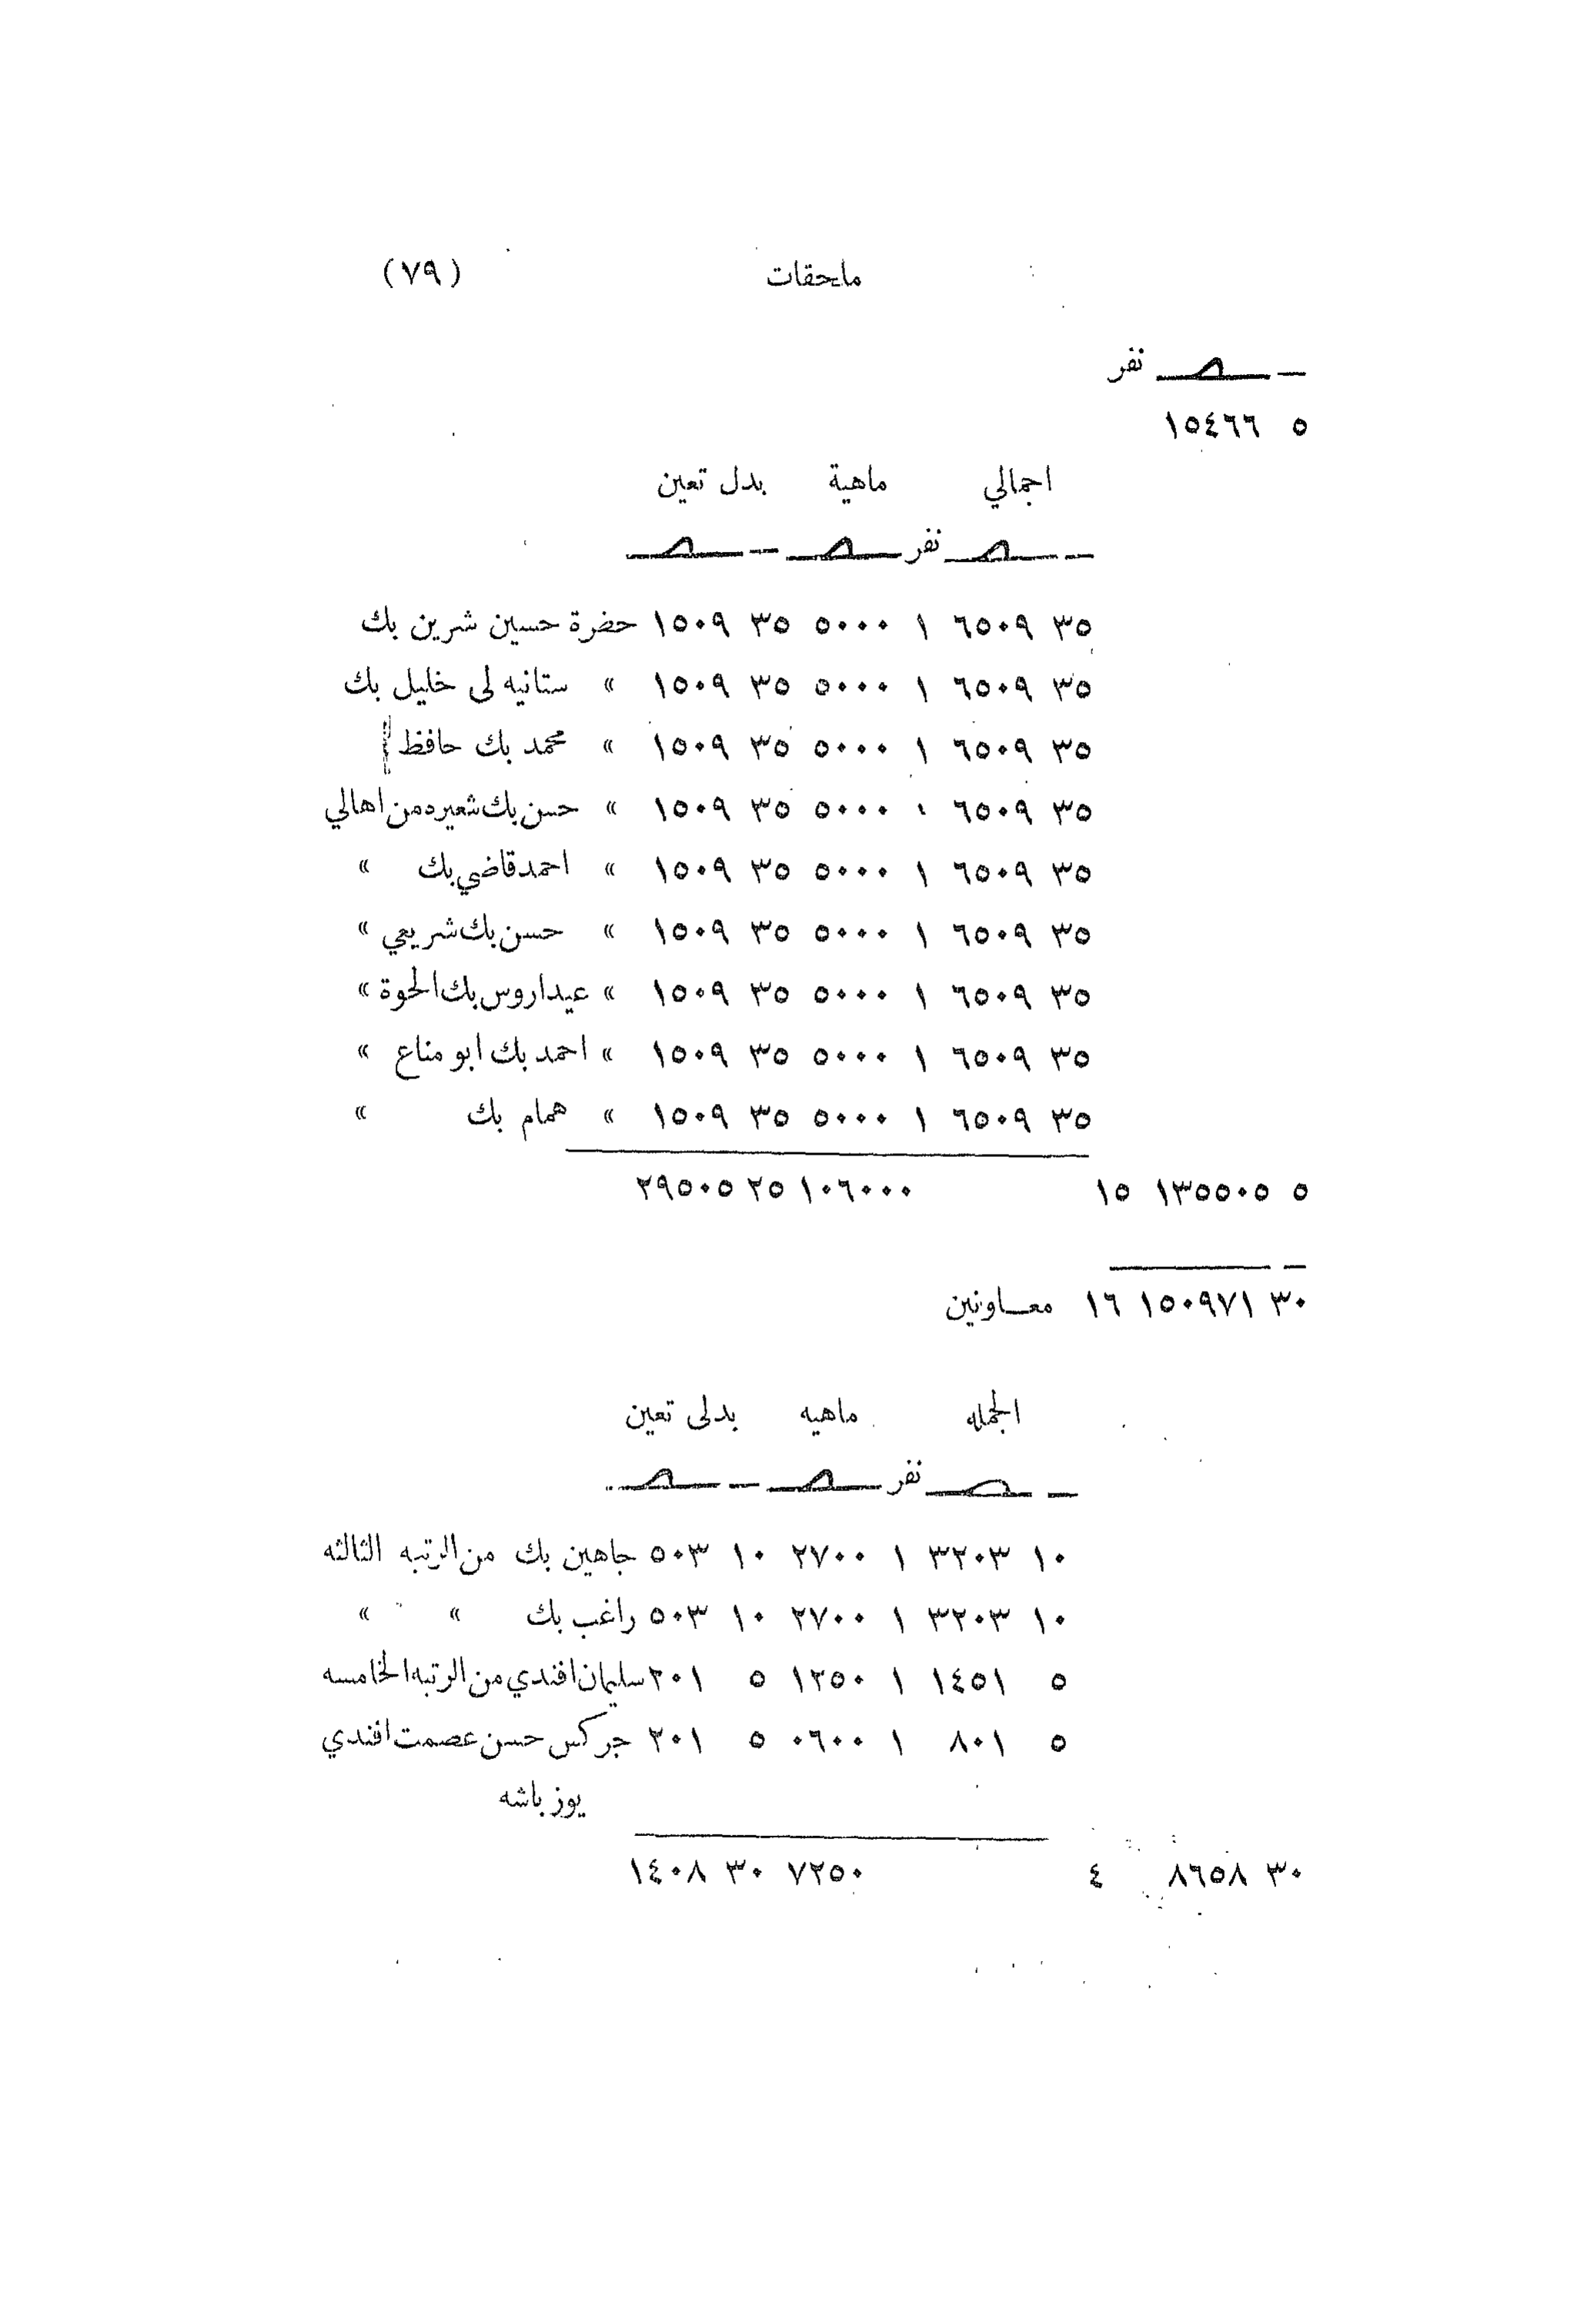 ملحقات (٧٩)
نفر
٥ ١٥٤٦٦
اجمالي ماهية بدل تعين
نفر
٣٥ ٦٥٠٩ ١ ٥٠٠٠ ٣٥ ١٥٠٩ حضرة حسين شرين بك
٣٥ ٦٥٠٩ ١ ٥٠٠٠ ٣٥ ١٥٠٩ » ستانيه لى خليل بك
٣٥ ٦٥٠٩ ١ ٥٠٠٠ ٣٥ ١٥٠٩ » محمد بك حافظ
٣٥ ٦٥٠٩ ١ ٥٠٠٠ ٣٥ ١٥٠٩ » حسن بك شعيره من اهالي
٣٥ ٦٥٠٩ ١ ٥٠٠٠ ٣٥ ١٥٠٩ » احمد قاضي بك »
٣٥ ٦٥٠٩ ١ ٥٠٠٠ ٣٥ ١٥٠٩ » حسن بك شريعي »
٣٥ ٦٥٠٩ ١ ٥٠٠٠ ٣٥ ١٥٠٩ » عيداروس بك الحوة »
٣٥ ٦٥٠٩ ١ ٥٠٠٠ ٣٥ ١٥٠٩ » احمد بك ابو مناع »
٣٥ ٦٥٠٩ ١ ٥٠٠٠ ٣٥ ١٥٠٩ » همام بك »
٥ ١٣٥٥٠٥ ١٥ ١٠٦٠٠٠ ٢٥ ٢٩٥٠٥
٣٠ ١٥٠٩٧١ ١٦ معاونين
الجمله ماهيه بدلى تعين
نفر
١٠ ٣٢٠٣ ١ ٢٧٠٠ ١٠ ٥٠٣ جاهين بك من الرتبه الثالثه
١٠ ٣٢٠٣ ١ ٢٧٠٠ ١٠ ٥٠٣ راغب بك » »
٥ ١٤٥١ ١ ١٢٥٠ ٥ ٢٠١ سليمان افندي من الرتبه الخامسه
٥ ٨٠١ ١ ٠٦٠٠ ٥ ٢٠١ جركس حسن عصمت افندي
يوز باشه
٣٠ ٨٦٥٨ ٤ ٧٢٥٠ ٣٠ ١٤٠٨